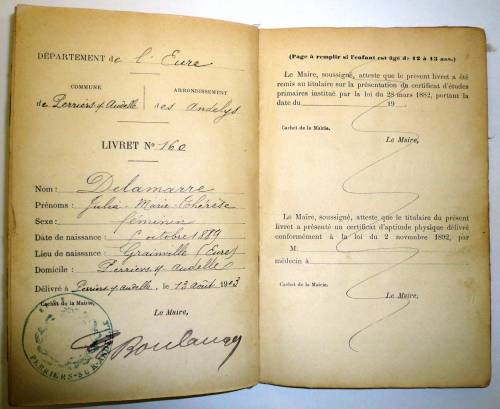 DÉPARTEMENT de l'Eure
COMMUNE
ARRONDISSEMENT
de Perriers s/ Andelle
des Andelys
LIVRET N° 160
Nom : Delamarre
Prénoms : Julia Marie Thérèse
Sexe : féminin
Date de naissance : 6 octobre 1889
Lieu de naissance : Grainville (Eure)
Domicile : Perriers s/ Andelle
Délivré à Perriers s/ Andelle, le 13 août 1903
Cachet de la Mairie.
Le Maire,
Boulanger
PERRIERS-SUR-ANDELLE
(Page à remplir si l'enfant est âgé de 12 à 13 ans.)
Le Maire, soussigné, atteste que le présent livret a été
remis au titulaire sur la présentation du certificat d'études
primaires institué par la loi du 28 mars 1882, portant la
date du 19 .
Cachet de la Mairie.
Le Maire,
Le Maire, soussigné, atteste que le titulaire du présent
livret a présenté un certificat d'aptitude physique délivré
conformément à la loi du 2 novembre 1892, par
M.
médecin à
Cachet de la Mairie.
Le Maire,